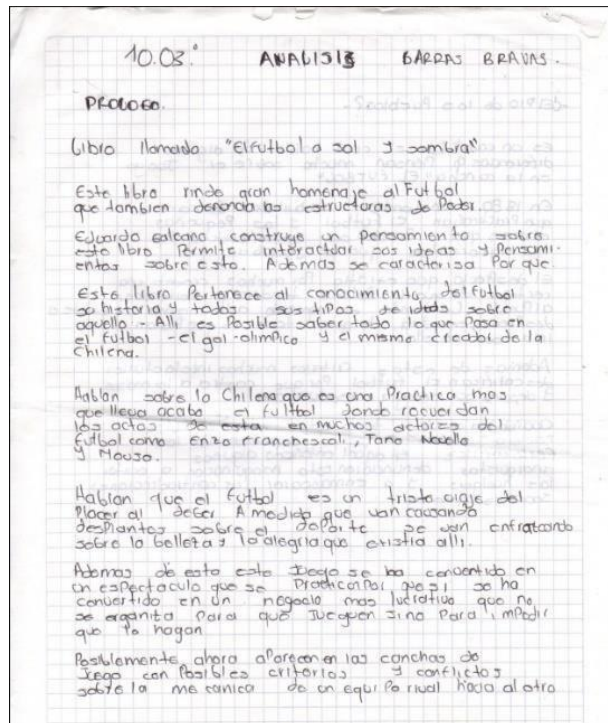 10.03. ANALISIS BARRAS BRAVAS.
PROLOGO.
Libro llamado "El futbol a sol y sombra"
Este libro rinde gran homenaje al Futbol
que tambien denuncia las estructuras de Poder.
Eduardo galeano, construye un pensamiento sobre
este libro Permite interactuar sus ideas y Pensami-
entos sobre esto. Ademas se caracterisa Por que
Este libro Pertenece al conocimiento del futbol
su historia y todos sus tipos de ideas sobre
aquello - Alli es Posible saber todo lo que Pasa en
el futbol - el gol - olimpico y el mismo creador de la
Chilena.
Hablan sobre la Chilena que es una Practica mas
que lleva acabo el fultbol donde recuerdan
los actos de esta en muchos actores del
futbol como Enzo Franchescoli, Tano Novello
y Mouso.
Hablan que el futbol es un triste viaje del
Placer al deber A medida que van causando
desplantes sobre el deporte se van enfrascando
sobre la belleza y la alegria que existia alli.
Ademas de esto este Juego se ha convertido en
un espectaculo que se Practican Por que si se ha
convertido en un negocio mas lucrativo que no
se organiza Para que Jueguen sino Para impedir
que lo hagan
Posiblemente ahora aparecen en las canchas de
Juego con Posibles criterios y conflictos
sobre la mecanica de un equipo rival hacia al otro